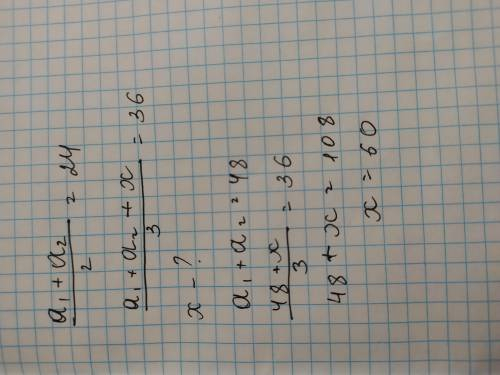 (a₁ + a₂)/2 = 24
(a₁ + a₂ + x)/3 = 36
x - ?
a₁ + a₂ = 48
(48 + x)/3 = 36
48 + x = 108
x = 60